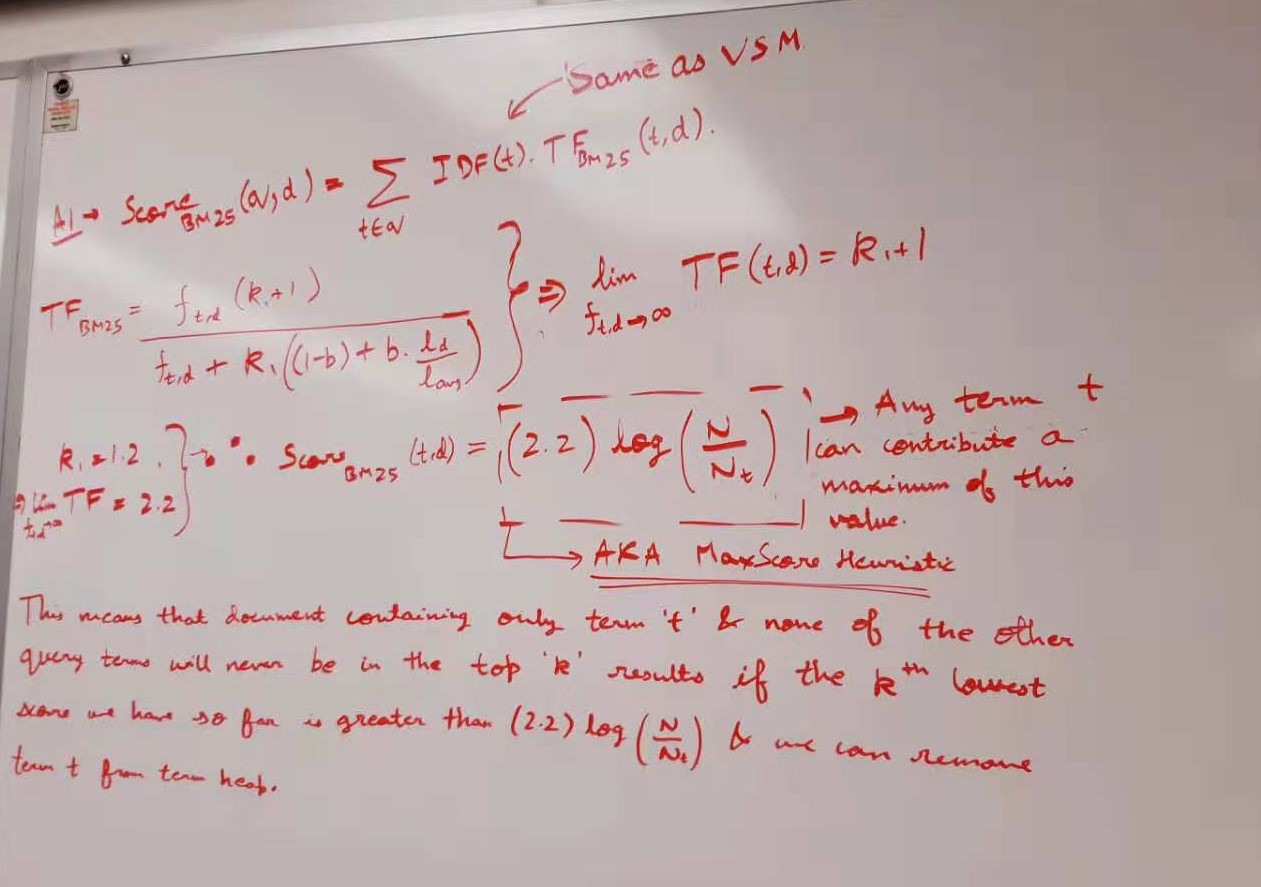 Same as VSM
A1 → Score_BM25 (q,d) = ∑_{t∈q} IDF(t). TF_BM25 (t,d).
TF_BM25 = f_{t,d} (k₁+1) / (f_{t,d} + k₁((1-b) + b. l_d/l_avg)) } ⇒ lim_{f_{t,d}→∞} TF(t,d) = k₁+1
k₁=1.2. } → ∴ Score_BM25 (t,d) = (2.2) log (N/N_t) → Any term t
⇒ lim_{f_{t,d}→∞} TF = 2.2
can contribute a
maximum of this
value.
→ AKA MaxScore Heuristic
This means that document containing only term 't' & none of the other
query terms will never be in the top 'k' results if the kᵗʰ lowest
score we have so far is greater than (2.2) log (N/N_t) & we can remove
term t from term heap.